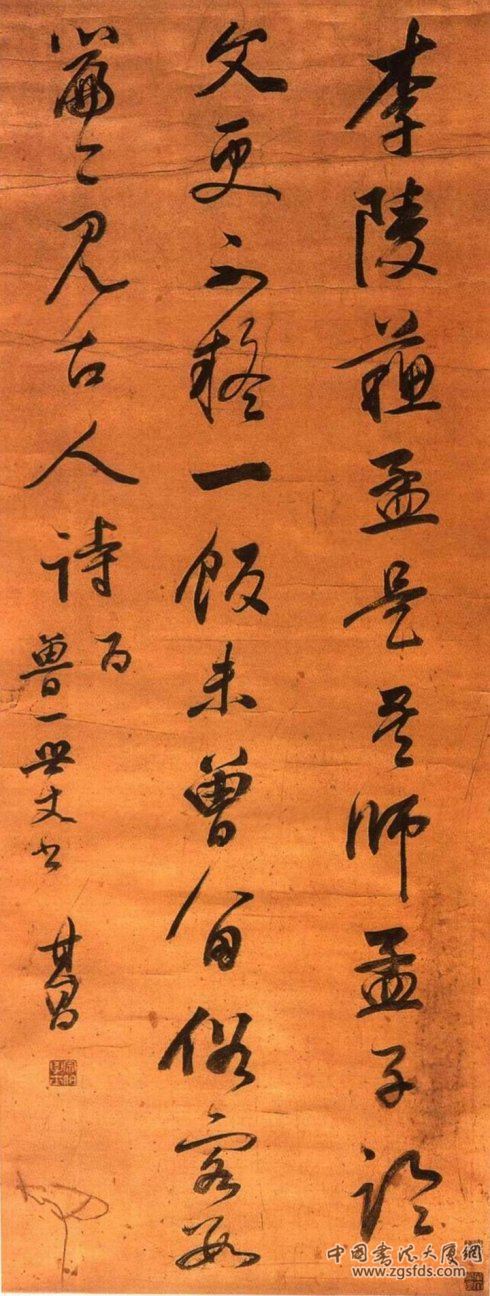 李陵蘇孟是吾師孟子論
文更不疑一飯未曾留俗客數
篇今見古人詩
一世丈書 其昌
中國書法大厦網
www.zgsfds.com